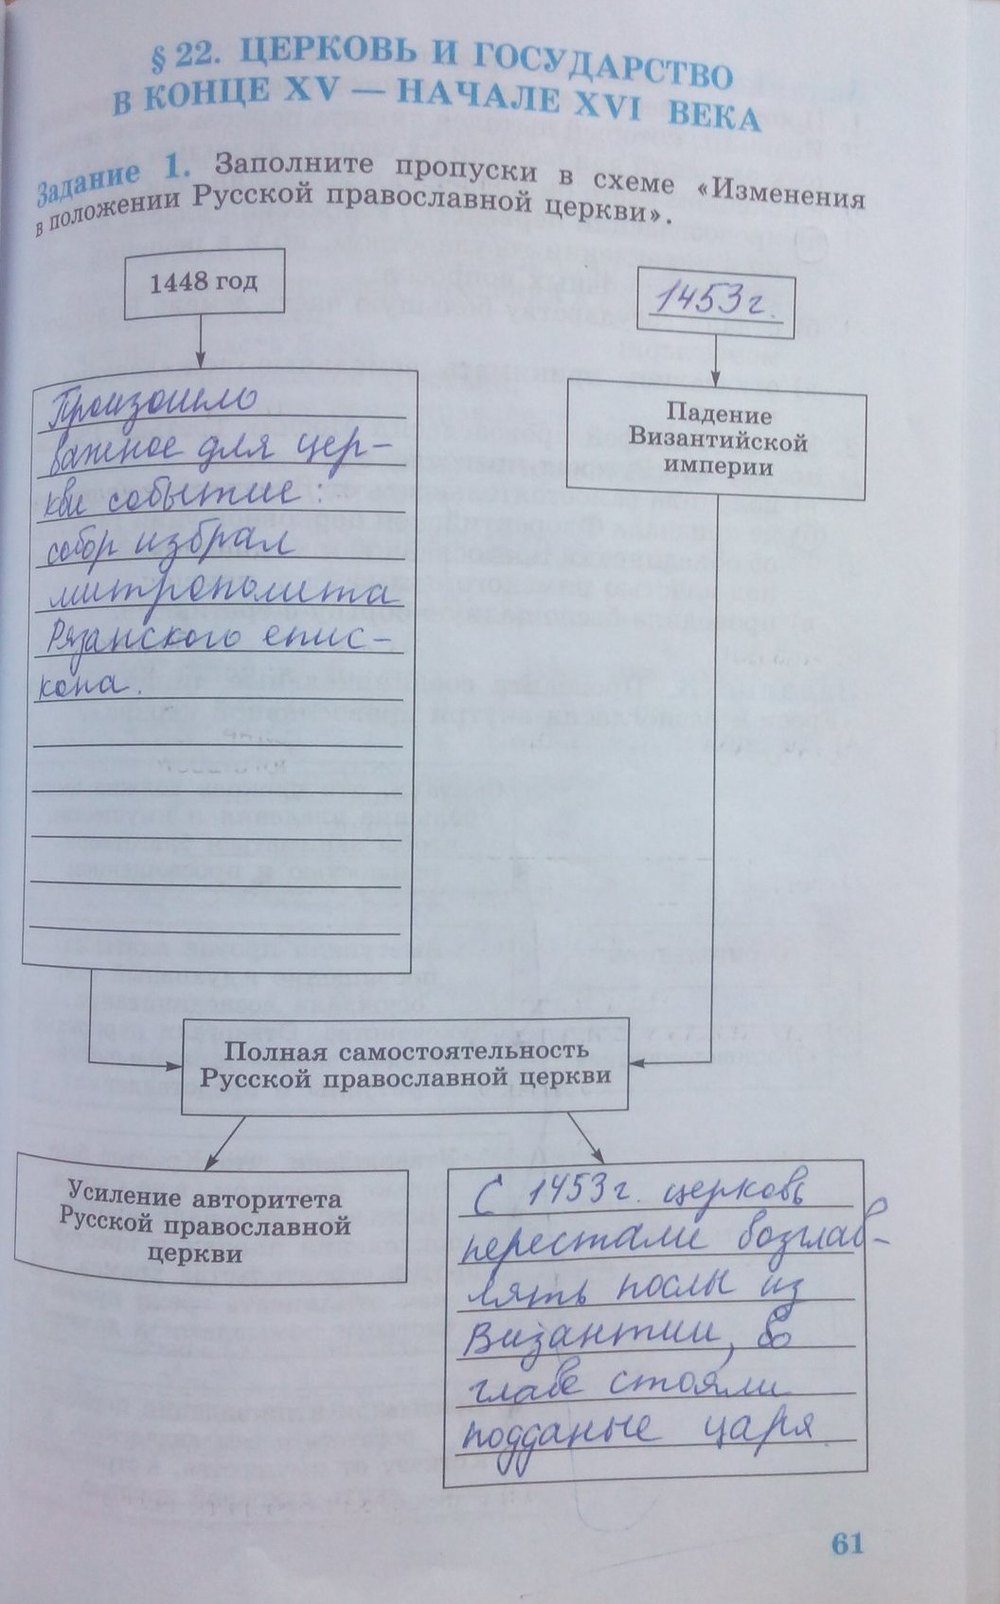 § 22. ЦЕРКОВЬ И ГОСУДАРСТВО
В КОНЦЕ XV — НАЧАЛЕ XVI ВЕКА
Задание 1. Заполните пропуски в схеме «Изменения
в положении Русской православной церкви».
1448 год
1453 г.
Произошло
важное для цер-
кви событие:
собор избрал
митрополита
Рязанского епис-
копа.
Падение
Византийской
империи
Полная самостоятельность
Русской православной церкви
Усиление авторитета
Русской православной
церкви
С 1453 г. церковь
перестали возглав-
лять послы из
Византии, во
главе стояли
подданые царя
61